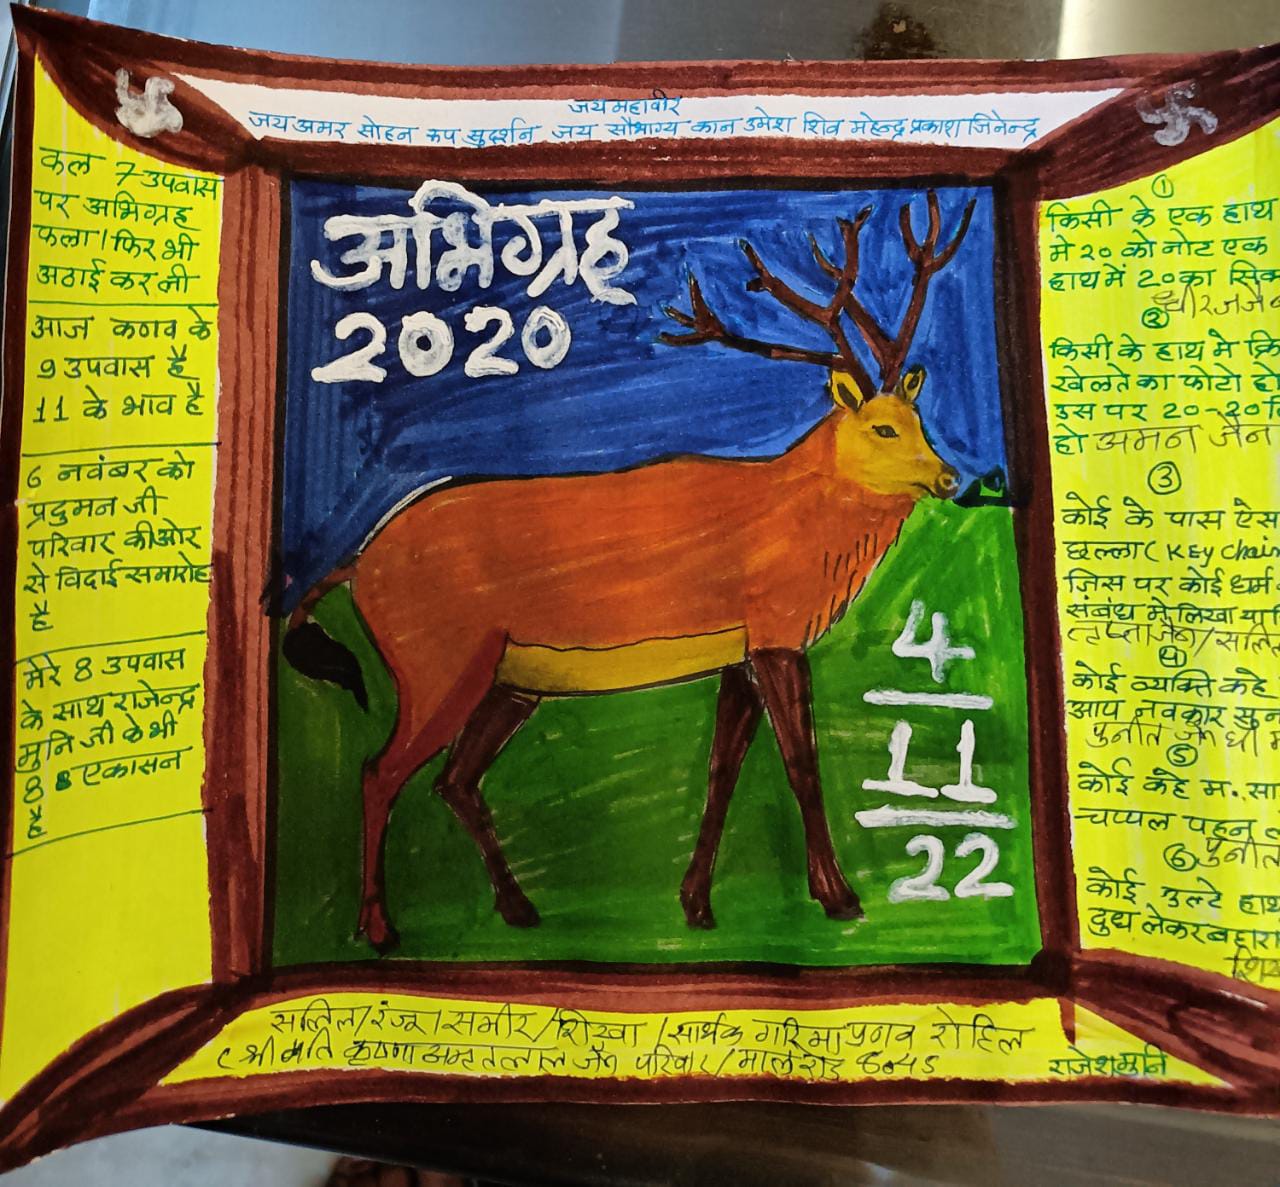 जय महावीर
जय अमर सोहन रूप सुदर्शन जय सौभाग्य कान उमेश शिव महेन्द्र प्रकाश जिनेन्द्र
कल 7 उपवास
पर अभिग्रह
फला। फिर भी
अठाई कर ली
आज कणव के
9 उपवास है
11 के भाव है
6 नवंबर को
प्रदुमन जी
परिवार की ओर
से विदाई समारोह
है
मेरे 8 उपवास
के साथ राजेन्द्र
मुनि जी के भी
8 एकासन
है
अभिग्रह
2020
4
11
22
①
किसी के एक हाथ
मे २० को नोट एक
हाथ में 20 का
धीरज
②
किसी के हाथ मे
खेलते का फोटो हो
उस पर 20-20
हो अमन जैन
③
कोई के पास
छल्ला (Key Chain
जिस पर कोई धर्म
संबंध मे लिखा
④
कोई व्यक्ति कहे
आप नवकार
पुनीत
⑤
कोई कहे म. सा
चप्पल पहन
⑥ पुनीत
कोई उल्टे हाथ
दुध लेकर
सलिल/रंजू/समीर/शिखा/सार्थक गरिमा प्रणव रोहिल
(श्रीमति कृष्णा अमृतलाल जैन परिवार/माल रोड
राजेशमुनि